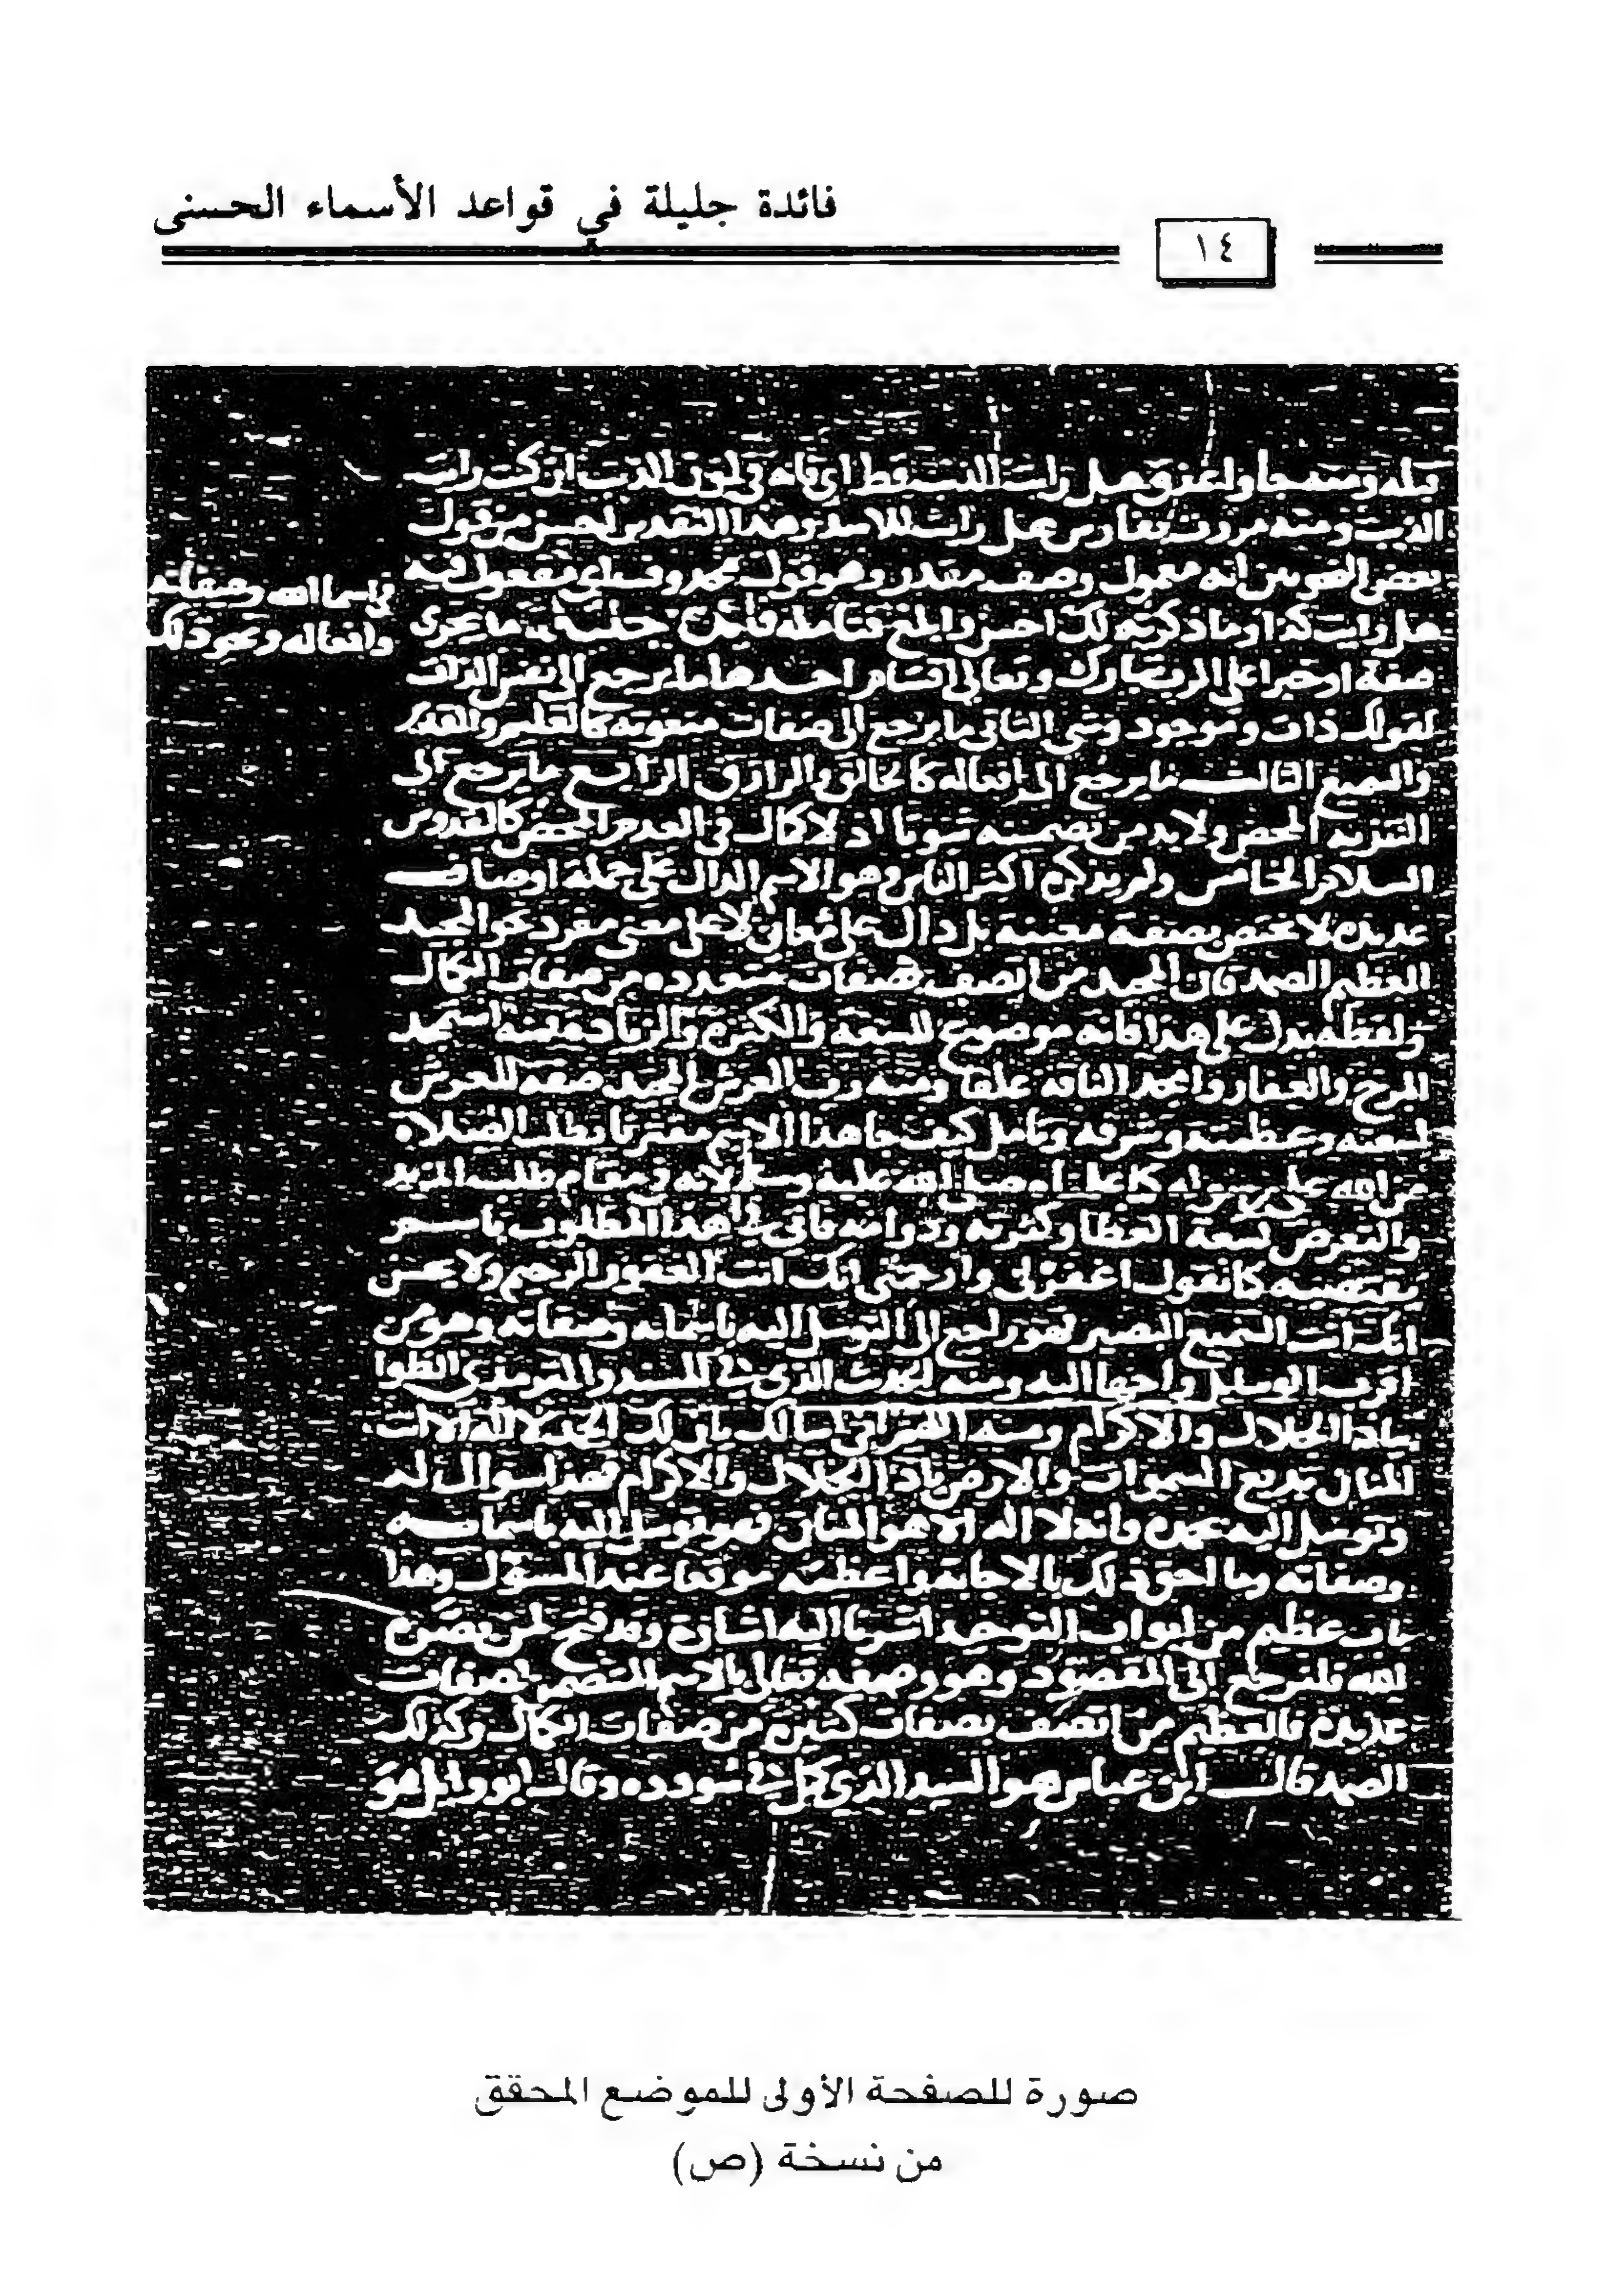 فائدة جليلة في قواعد الأسماء الحسنى
١٤
الذيب ومنه مررت بفارس هل رايت للاسد وهذا التقدير احسن من قول
بعض النحويين انه معمول وصف مقدر وهو قول محذوف مفعول فيه
هل رايت كذا وما ذكرته لك احسن والمخ فتامله فايدة جليلة ما يجرى
في اسما الله وصفاته
وافعاله ونحو ذلك
صفة او خبرا على الرب تبارك وتعالى اقسام احدها ما يرجع الى نفس الذات
لقولك ذات وموجود وشى الثانى ما يرجع الى صفات معنوية كالعليم والقدير
والسميع الثالث ما يرجع الى افعاله كالخالق والرازق الرابع ما يرجع الى
التنزيه المحض ولا بد من تضمنه ثبوتا اذ لا كمال في العدم المحض كالقدوس
السلام الخامس ولم يذكره اكثر الناس وهو الاسم الدال على جملة اوصاف
عديدة لا تختص بصفة معينة بل دال على معان لا على معنى مفرد نحو المجيد
العظيم الصمد فان المجيد من اتصف بصفات متعدده من صفات الكمال
ولفظه يدل على هذا فانه موضوع للسعة والكثرة والزيادة فمنه استمجد
المرخ والعفار وامجد الناقه علفا ومنه رب العرش المجيد صفه للعرش
لسعته وعظمته وشرفه وتامل كيف جا هذا الاسم مقترنا بطلب الصلاة
من الله على رسوله كما علمناه صلى الله عليه وسلم لانه في مقام طلب المزيد
والتعرض لسعة العطا وكثرته ودوامه فاتى في هذا المطلوب باسم
يقتضيه كما تقول اغفر لى وارحمنى انك انت الغفور الرحيم ولا يحسن
انك انت السميع البصير فهو راجع الى التوسل اليه باسمائه وصفاته وهو من
اقرب الوسايل واحبها اليه ومنه الحديث الذى في المسند والترمذي الظوا
بياذا الجلال والاكرام ومنه اللهم انى اسالك بان لك الحمد لا اله الا انت
المنان بديع السموات والارض ياذا الجلال والاكرام فهذا سوال له
وتوسل اليه بحمده وانه لا اله الا هو المنان فهو توسل اليه باسمائه
وصفاته وما احق ذلك بالاجابة واعظمه موقعا عند المسؤل وهذا
باب عظيم من ابواب التوحيد اشرنا اليه اشارة وقد فتح لمن بصره
الله فلنرجع الى المقصود وهو وصفه تعالى بالاسم المتضمن لصفات
عديدة فالعظيم من اتصف بصفات كثيرة من صفات الكمال وكذلك
الصمد قال ابن عباس هو السيد الذي كمل في سودده وقال ابو وايل هو
صورة للصفحة الأولى للموضع المحقق
من نسخة (ص)